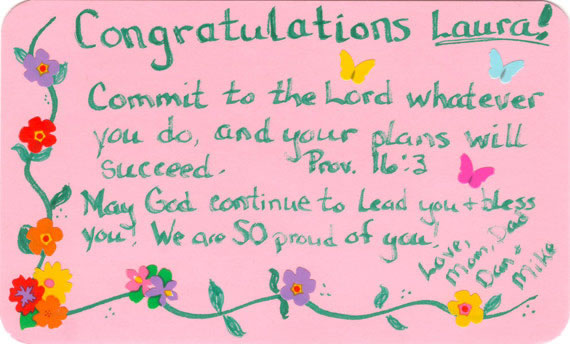 Congratulations Laura!
Commit to the Lord whatever
you do, and your plans will
succeed. Prov. 16:3
May God continue to Lead you + bless
you! We are SO proud of you!
Love,
Mom, Dad
Dan +
Mike